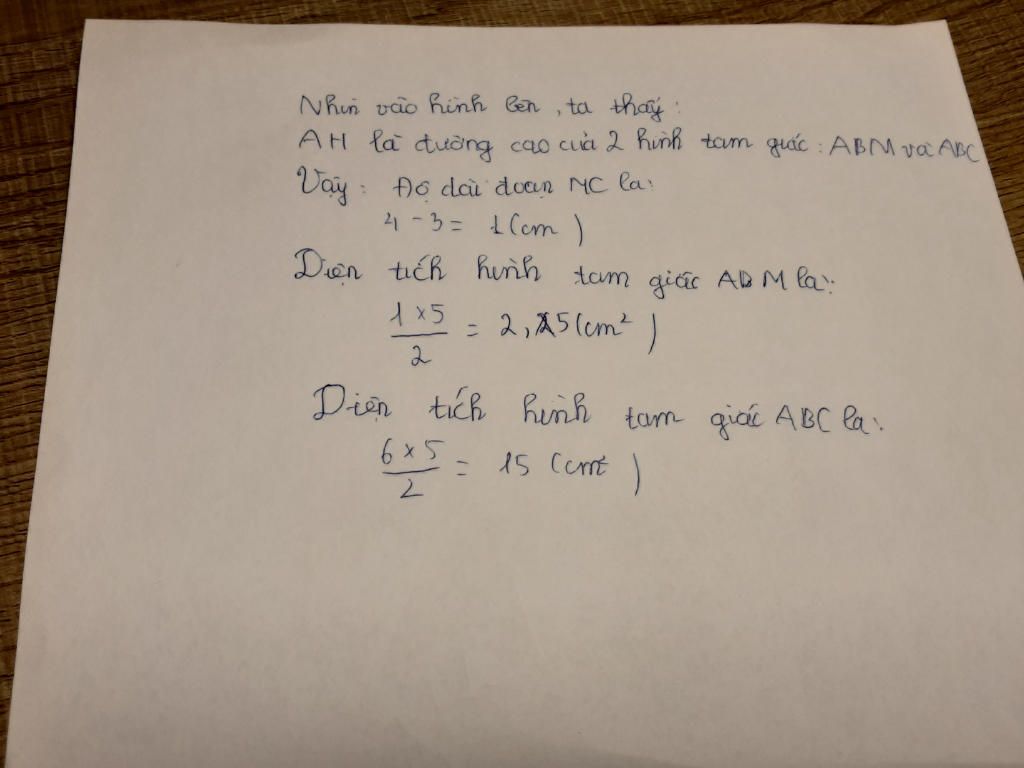 Nhìn vào hình bên, ta thấy:
AH là đường cao của 2 hình tam giác: ABM và ABC
Vậy: Độ dài đoạn MC là:
4 - 3 = 1 (cm)
Diện tích hình tam giác ABM là:
1 × 5 / 2 = 2,5 (cm²)
Diện tích hình tam giác ABC là:
6 × 5 / 2 = 15 (cm²)